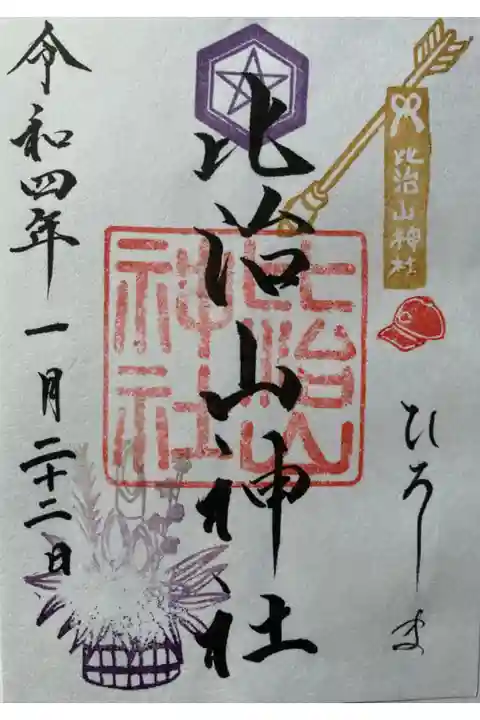 比治山神社
比治山神社
ひろしま
比治山神社
令和四年一月二十二日